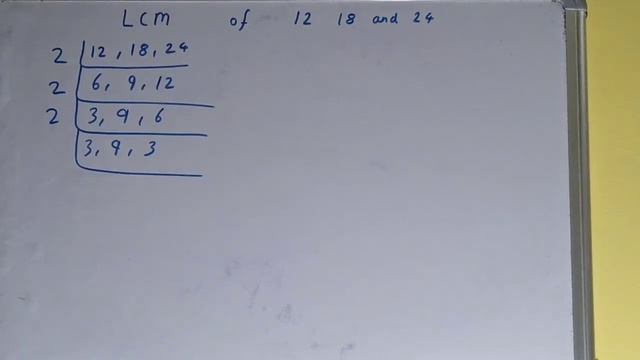 LCM of 12 18 and 24
2 12, 18, 24
2 6, 9, 12
2 3, 9, 6
3, 9, 3